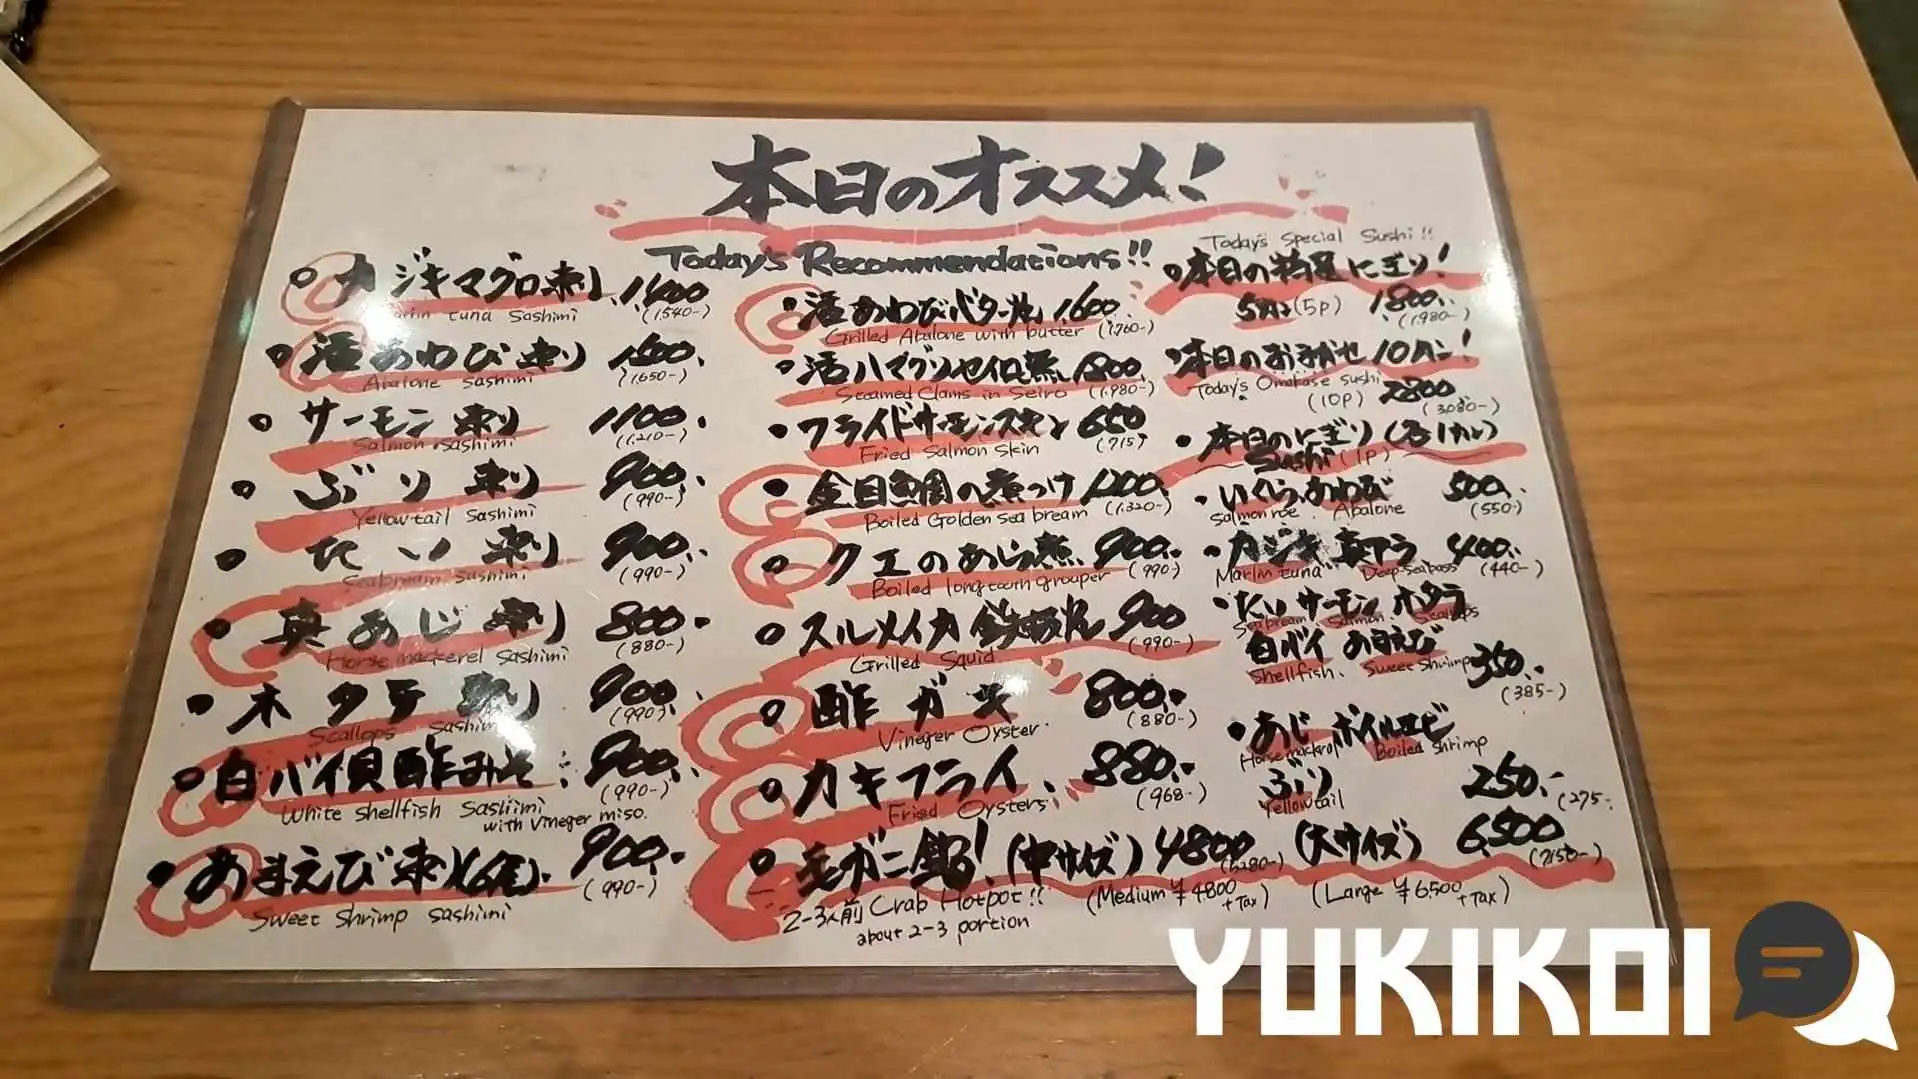 本日のオススメ!
Today's Recommendations!!
カジキマグロ刺し 1,400
Marlin tuna Sashimi (1,540-)
活あわび刺し 1,500.
Abalone Sashimi (1,650-)
サーモン刺し 1100.
Salmon Sashimi (1,210-)
ぶり刺し 900.
Yellowtail Sashimi (990-)
たい刺し 900.
Seabream Sashimi (990-)
真あじ刺し 800-
Horse mackerel Sashimi (880-)
ホタテ刺し 900.
Scallops Sashimi (990-)
白バイ貝酢みそ 900.
White shellfish Sashimi with vineger miso. (990-)
あまえび刺し(6尾) 900.
Sweet Shrimp Sashimi (990-)
活あわびバター焼 1,600
Grilled Abalone with butter (1,760-)
活ハマグリセイロ蒸し 1,800
Steamed Clams in Seiro (1,980-)
フライドサーモンスキン 650
Fried Salmon Skin (715)
金目鯛の煮つけ 1,200
Boiled Golden sea bream (1,320-)
クエのあら煮 900.
Boiled longtooth grouper (990)
スルメイカ鉄板焼 900
Grilled Squid (990-)
酢ガキ 800.-
Vineger Oyster (880-)
カキフライ 880.-
Fried Oysters (968-)
毛ガニ鍋! (中サイズ) 4800 (5280-) (大サイズ) 6,500 (7150-)
2-3人前 Crab Hotpot!! (Medium ¥4800 +Tax) (Large ¥6500 +Tax)
about 2-3 portion
Today's Special Sushi!!
本日の特選にぎり!
5カン (5p) 1,800.
(1,980-)
本日のおまかせ10カン!
Today's Omakase Sushi (10p) 2800
(3,080-)
本日のにぎり (各1カン)
Sushi (1p)
いくら、あわび 500.
Salmon roe. Abalone (550-)
カジキ 400.
Marlin tuna Deep-seabass (440-)
たい サーモン ホタテ
Seabream. Salmon. Scallops
白バイ 甘えび 350.
Shellfish. Sweet Shrimp (385-)
あじ ボイルエビ
Horse mackerel Boiled Shrimp
ぶり 250.-
Yellowtail (275-
YUKIKOI